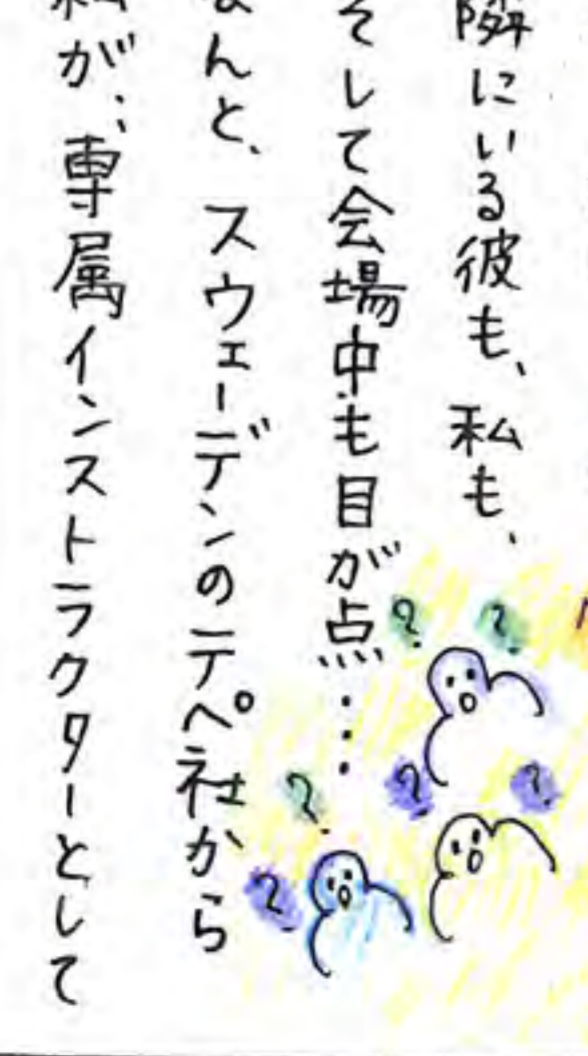 隣にいる彼も、私も、
そして会場中も目が点…
なんと、スウェーデンのテペ社から
私が…専属インストラクターとして
? ? ? ? ? ?